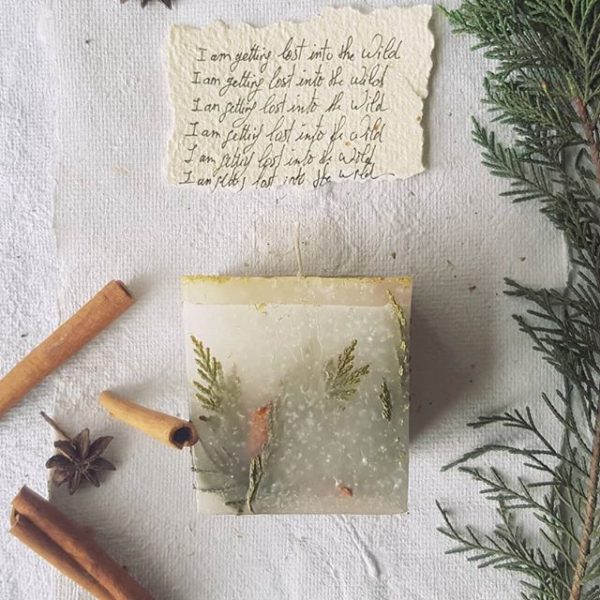 I am getting lost into the Wild
I am getting lost into the wild
I am getting lost into the Wild
I am getting lost into the wild
I am getting lost into the Wild
I am getting lost into the Wild